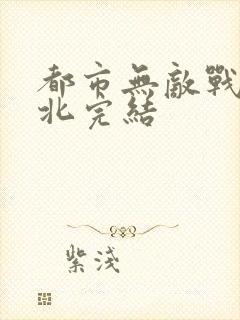 都市無敵戰
北完結
紫淺